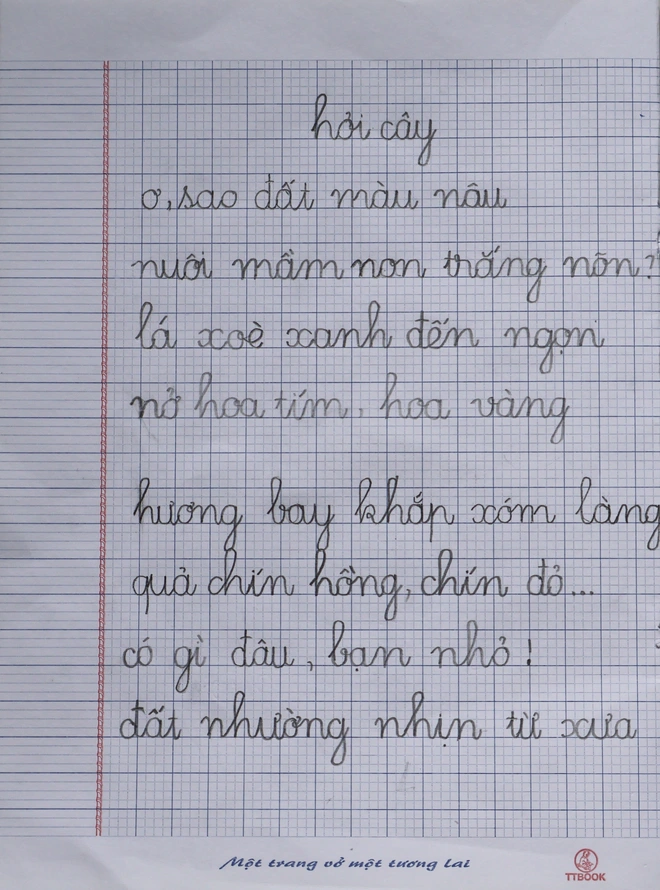 hỏi cây
ơ, sao đất màu nâu
nuôi mầm non trắng nõn?
lá xoè xanh đến ngọn
nở hoa tím, hoa vàng
hương bay khắp xóm làng
quả chín hồng, chín đỏ...
có gì đâu, bạn nhỏ!
đất nhường nhịn từ xưa
Một trang vở một tương lai
TTBOOK